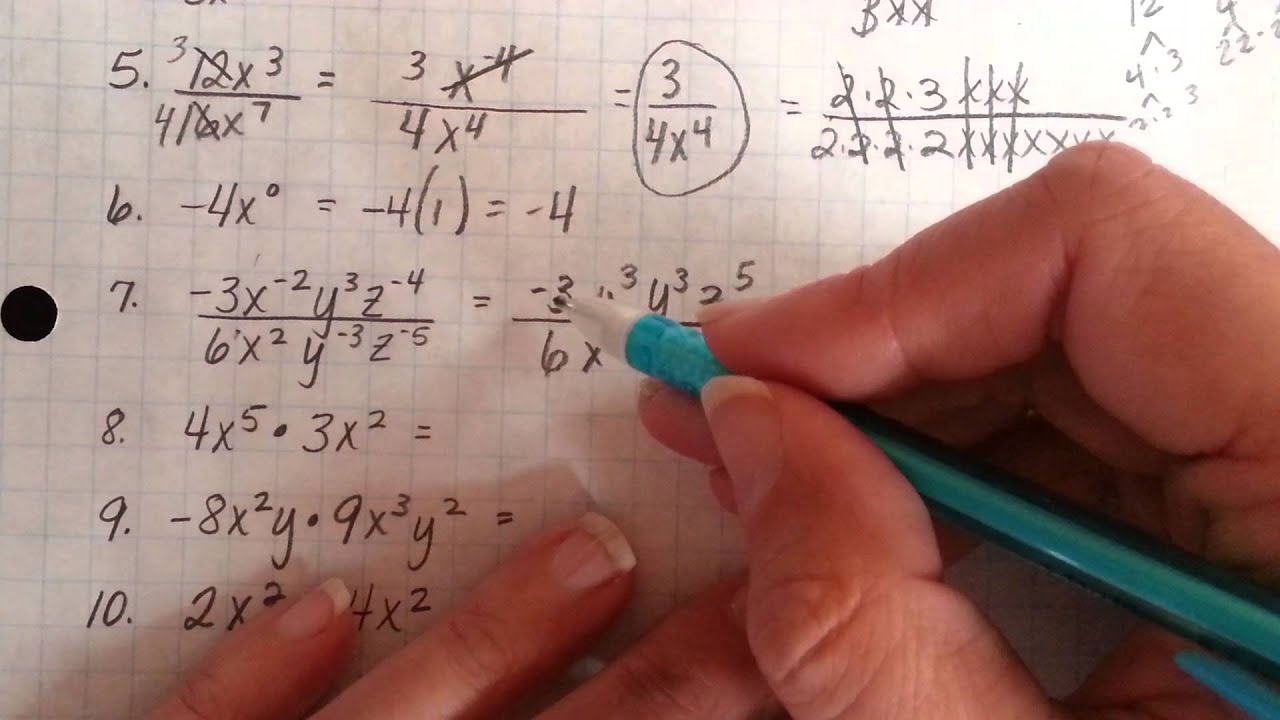 3xx
12
5. ³12x³ / 416x⁷ = 3 x⁻⁴ / 4x⁴ = 3 / 4x⁴ = 2·2·3xxx / 2·2·2·2xxxxxxx
4·3
2·2
6. -4x⁰ = -4(1) = -4
7. -3x⁻²y³z⁻⁴ / 6x²y⁻³z⁻⁵ = -3 y³y³z⁵ / 6x
8. 4x⁵·3x² =
9. -8x²y·9x³y² =
10. 2x² 4x²